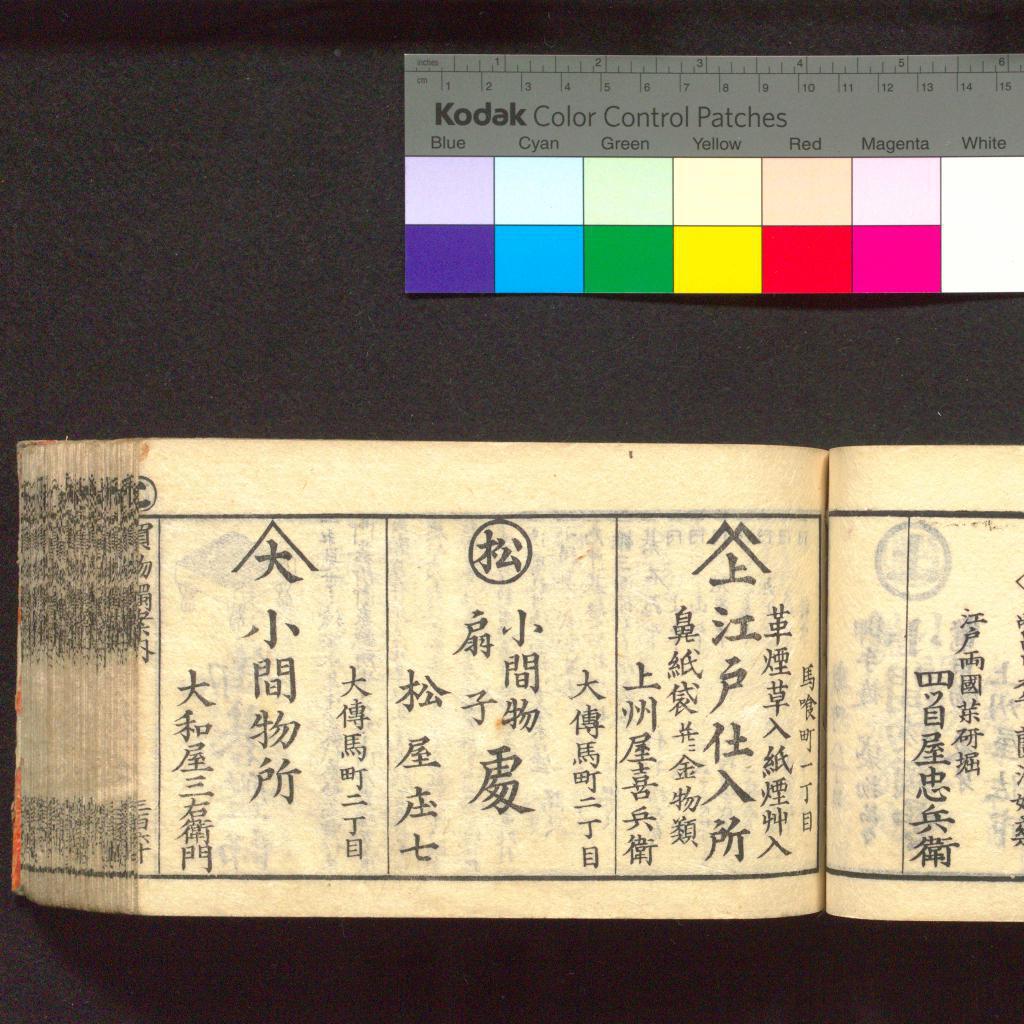 inches 1 2 3 4 5 6
cm 1 2 3 4 5 6 7 8 9 10 11 12 13 14 15
Kodak Color Control Patches
Blue Cyan Green Yellow Red Magenta White
江戸両國薬研堀
四目屋忠兵衛
上
馬喰町一丁目
革煙草入紙煙艸入
江戸仕入所
鼻紙袋并ニ金物類
上州屋喜兵衛
松
大傳馬町二丁目
小間物
扇子
處
松屋庄七
大
大傳馬町二丁目
小間物所
大和屋三右衛門
買物獨案内